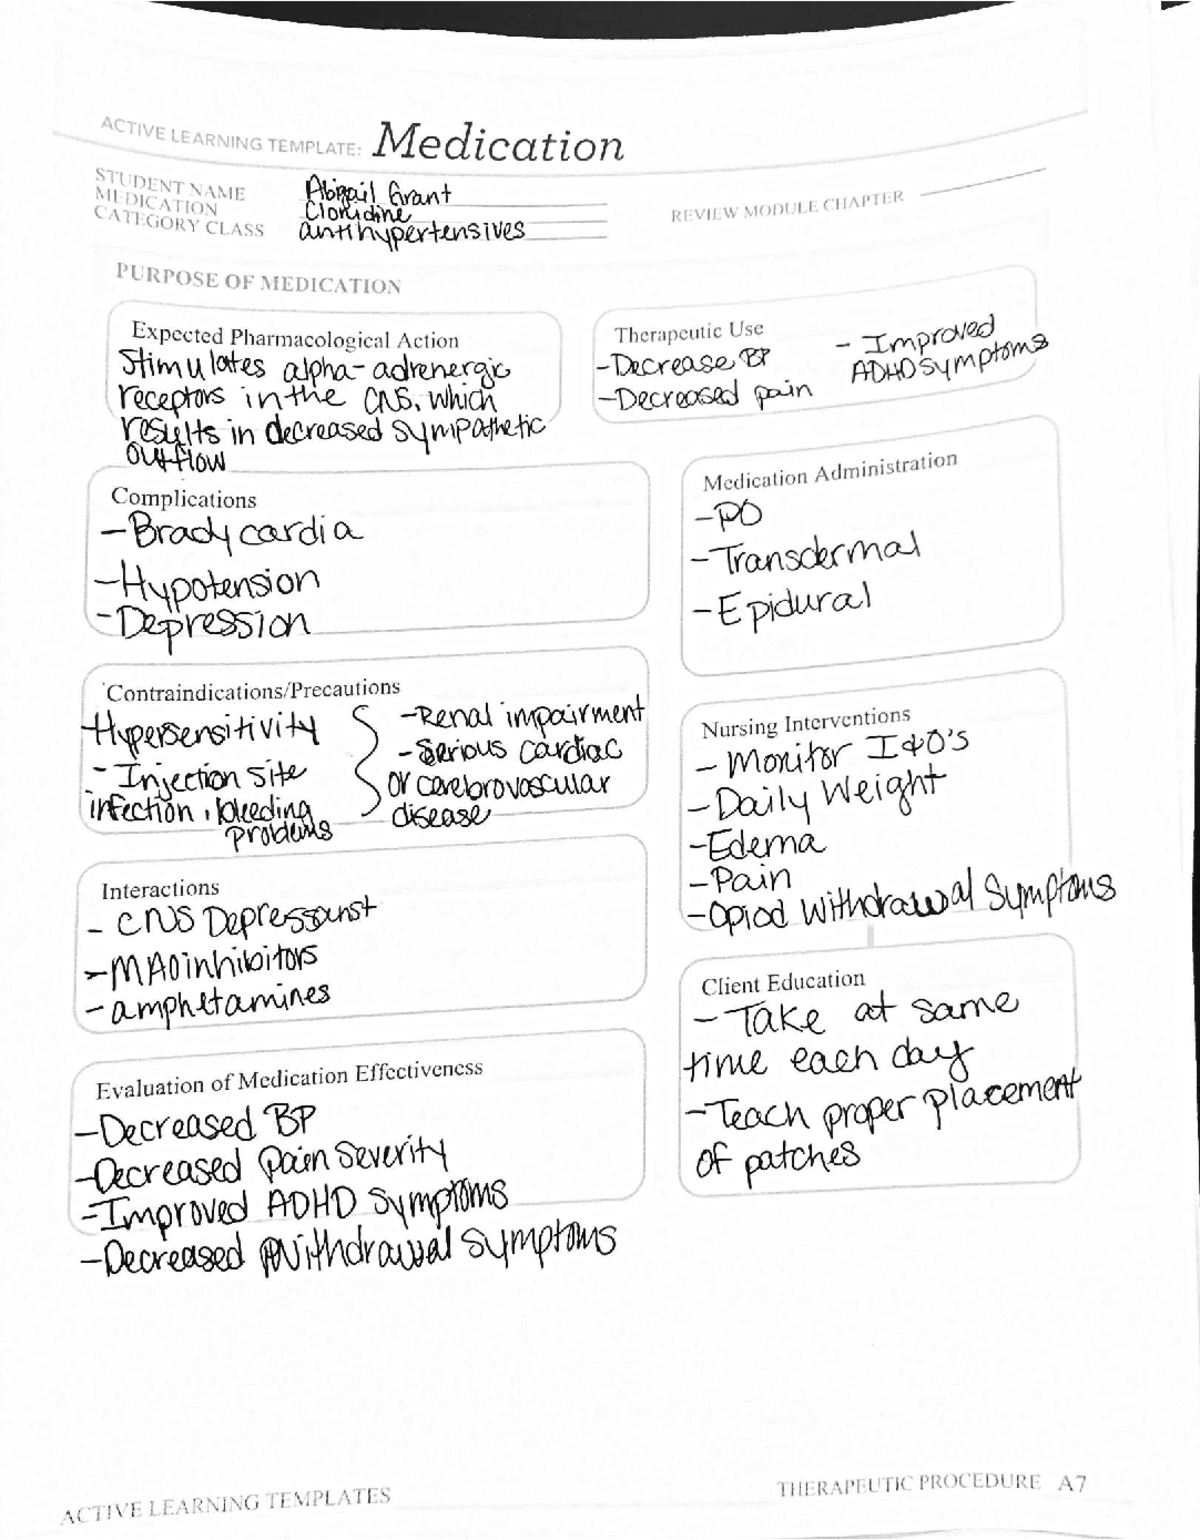 ACTIVE LEARNING TEMPLATE: Medication
STUDENT NAME Abigail Grant
MEDICATION Clonidine
CATEGORY CLASS antihypertensives
REVIEW MODULE CHAPTER
PURPOSE OF MEDICATION
Expected Pharmacological Action
Stimulates alpha-adrenergic
receptors in the CNS, which
results in decreased sympathetic
outflow
Therapeutic Use
-Decrease BP
-Decreased pain
- Improved
ADHD symptoms
Complications
-Bradycardia
-Hypotension
-Depression
Medication Administration
-PO
-Transdermal
-Epidural
Contraindications/Precautions
-Hypersensitivity
- Injection site
infection, bleeding
problems
-Renal impairment
-Serious cardiac
or carebrovascular
disease
Nursing Interventions
- Monitor I&O's
-Daily Weight
-Edema
-Pain
-Opiod Withdrawal Symptoms
Interactions
- CNS Depressanst
-MAOinhibitors
-amphetamines
Client Education
- Take at same
time each day
-Teach proper placement
of patches
Evaluation of Medication Effectiveness
-Decreased BP
-Decreased Pain Severity
-Improved ADHD Symptoms
-Decreased Withdrawal Symptoms
ACTIVE LEARNING TEMPLATES
THERAPEUTIC PROCEDURE A7